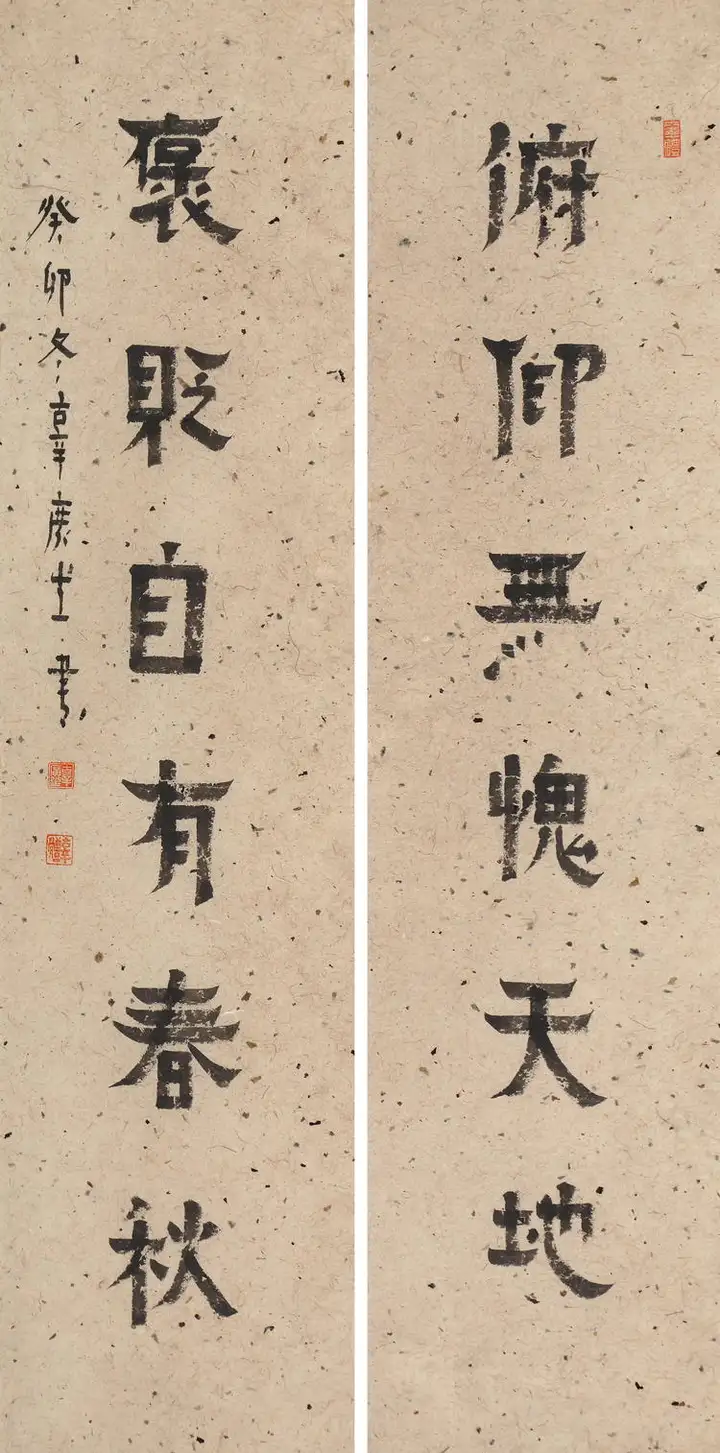 俯仰無愧天地
褒貶自有春秋
癸卯冬章康生書